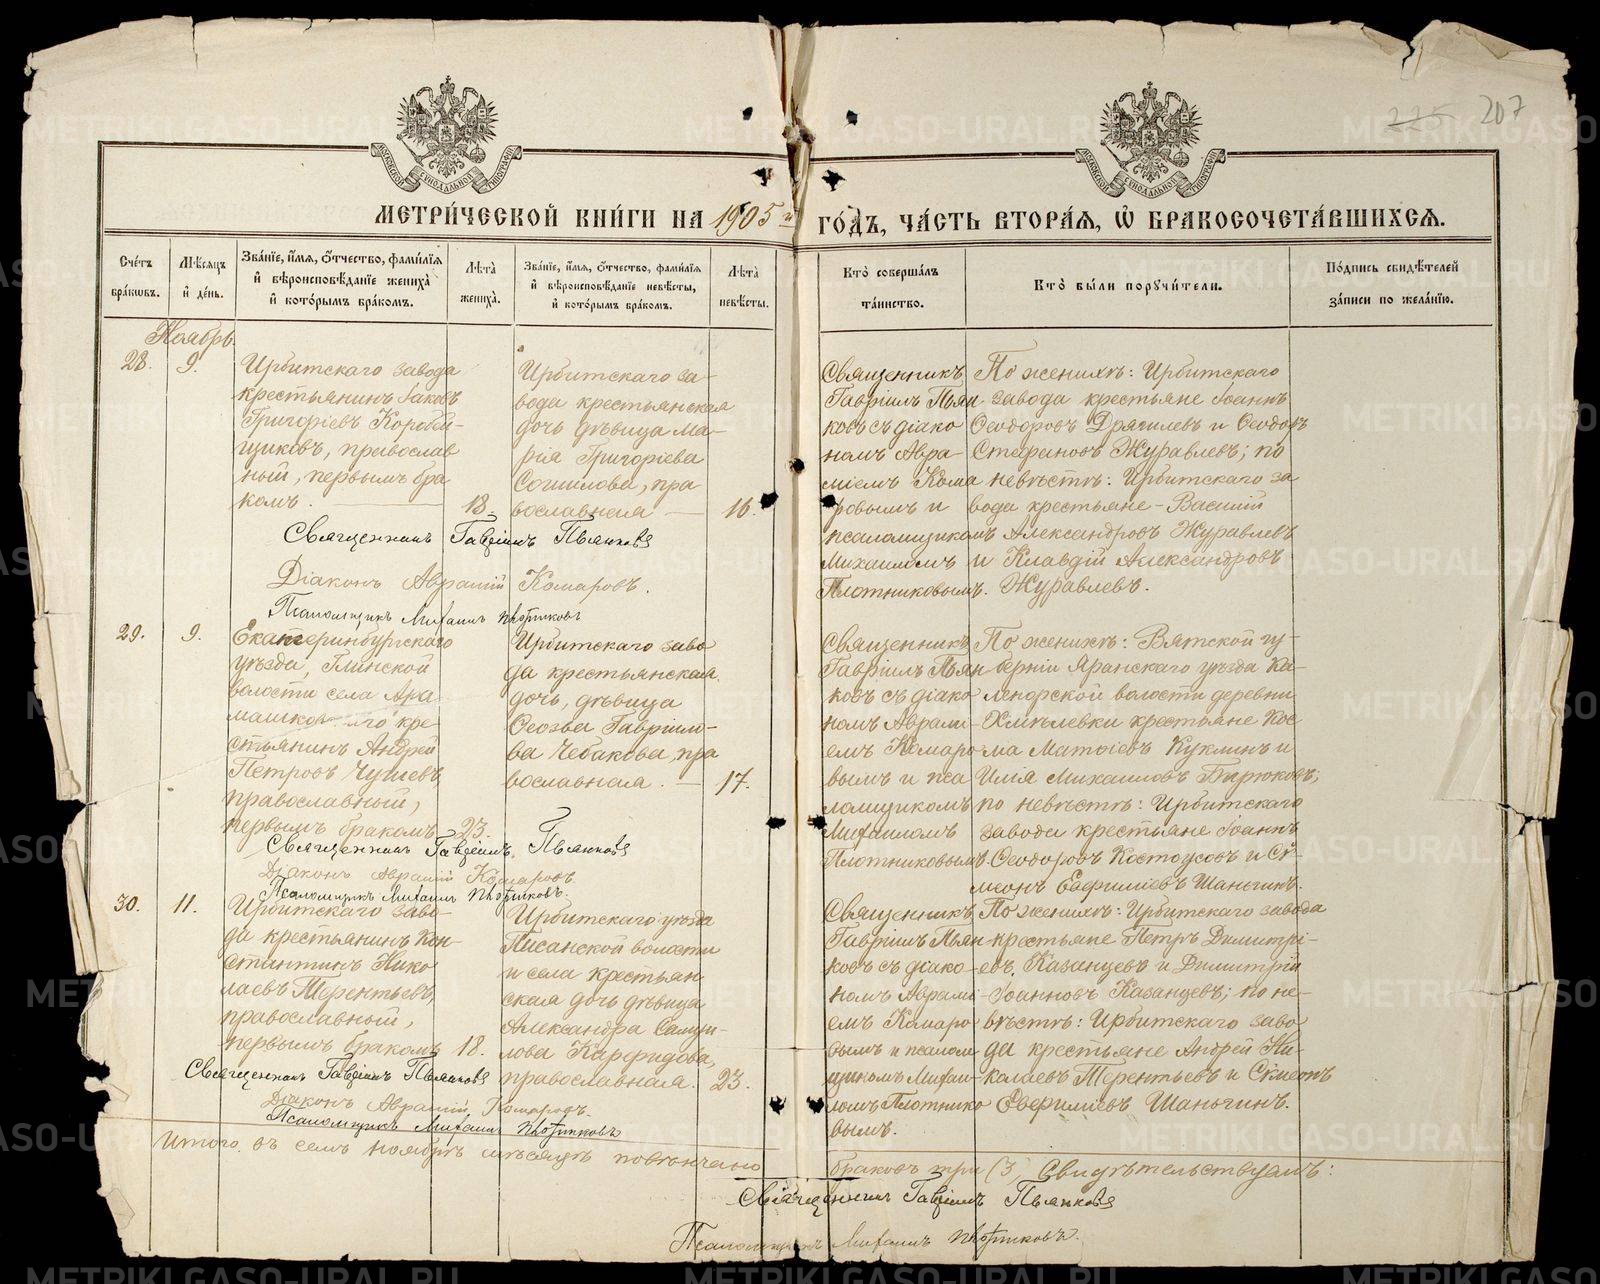 225 207
МЕТРИ́ЧЕСКОЙ КНИ́ГИ НА 1905 й ГО́ДЪ, ЧА́СТЬ ВТОРА́Я, Ѡ БРАКОСОЧЕТА́ВШИХСЯ.
МОСКОВСКОЙ СѴНОДАЛЬНОЙ ТИПОГРАФІИ
МОСКОВСКОЙ СѴНОДАЛЬНОЙ ТИПОГРАФІИ
Сче́тъ бра́ковъ.
Мѣ́сяцъ и́ де́нь.
Зва́ніе, и́мя, ѻ́тчество, фами́лія и́ вѣроисповѣ́даніе жениха̀ и́ кото́рымъ бра́комъ.
Лѣ́та жениха̀.
Зва́ніе, и́мя, ѻ́тчество, фами́лія и́ вѣроисповѣ́даніе невѣ́сты, и́ кото́рымъ бра́комъ.
Лѣ́та невѣ́сты.
Кто̀ соверша́лъ та́инство.
Кто̀ бы́ли поручи́тели.
По́дпись свидѣ́телей за́писи по жела́нію.
Ноябрь.
28.
9.
Ирбитскаго завода
крестьянинъ Іаковъ
Григоріевъ Коробей-
щиковъ, православ
ный, первымъ бра
комъ.
18.
Ирбитскаго за-
вода крестьянская
дочь дѣвица Ма-
рія Григоріева
Согшилова, пра
вославная
16.
Священникъ
Гавріилъ Пьян
ковъ съ діако
номъ Авра-
міемъ Кома
ровымъ и
псаломщикомъ
Михаиломъ
Плотниковымъ.
По женихѣ: Ирбитскаго
завода крестьяне Іоаннъ
Ѳеодоровъ Дрягилевъ и Ѳеодоръ
Стефановъ Журавлевъ; по
невѣстѣ: Ирбитскаго за
вода крестьяне - Василій
Александровъ Журавлевъ
и Клавдій Александровъ
Журавлевъ.
Священникъ Гавріилъ Пьянковъ
Діаконъ Аврамій Комаровъ.
Псаломщикъ Михаилъ Плотниковъ
29.
9.
Екатеринбургскаго
уѣзда, Глинской
волости села Ара
машковскаго кре-
стьянинъ Андрей
Петровъ Чушевъ,
православный,
первымъ бракомъ
23.
Ирбитскаго заво
да крестьянская
дочь, дѣвица
Ѳеозва Гавріило-
ва Чебакова, пра
вославная.
17.
Священникъ
Гавріилъ Пьян
ковъ съ діако
номъ Аврамі-
емъ Комаро
вымъ и пса
ломщикомъ
Михаиломъ
Плотниковымъ.
По женихѣ: Вятской гу-
берніи Яранскаго уѣзда Ка-
ленорской волости деревни
Хмѣлевки крестьяне Кос
ма Матѳіевъ Куклинъ и
Илія Михаиловъ Бирюковъ;
по невѣстѣ: Ирбитскаго
завода крестьяне Іоаннъ
Ѳеодоровъ Костоусовъ и Сѵ-
меонъ Евфиміевъ Шаньгинъ.
Священникъ Гавріилъ Пьянковъ
Діаконъ Аврамій Комаровъ.
Псаломщикъ Михаилъ Плотниковъ.
30.
11.
Ирбитскаго заво-
да крестьянинъ Кон-
стантинъ Нико
лаевъ Терентьевъ,
православный,
первымъ бракомъ
18.
Ирбитскаго уѣзда
Писанской волости
и села крестьян
ская дочь дѣвица
Александра Самуи-
лова Карфидова,
православная.
23.
Священникъ
Гавріилъ Пьян-
ковъ съ діако-
номъ Аврамі-
емъ Комаро
вымъ и псалом
щикомъ Михаи-
ломъ Плотнико
вымъ.
По женихѣ: Ирбитскаго завода
крестьяне Петръ Димитрі-
евъ Казанцевъ и Димитрій
Іоанновъ Казанцевъ; по не-
вѣстѣ: Ирбитскаго заво
да крестьяне Андрей Ни-
колаевъ Терентьевъ и Сѵмеонъ
Евфиміевъ Шаньгинъ.
Священникъ Гавріилъ Пьянковъ
Діаконъ Аврамій Комаровъ.
Псаломщикъ Михаилъ Плотниковъ
Итого въ семъ ноябрѣ мѣсяцѣ повѣнчано браковъ три (3) Свидѣтельствуемъ:
Священникъ Гавріилъ Пьянковъ
Псаломщикъ Михаилъ Плотниковъ.
METRIKI.GASO-URAL.RU